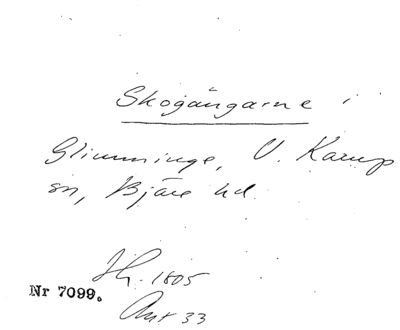 Skogångarne i
Glimminge, V. Karup
sn, Bjäre hd.
Hr. 1805
Nr 7099.
Akt 33